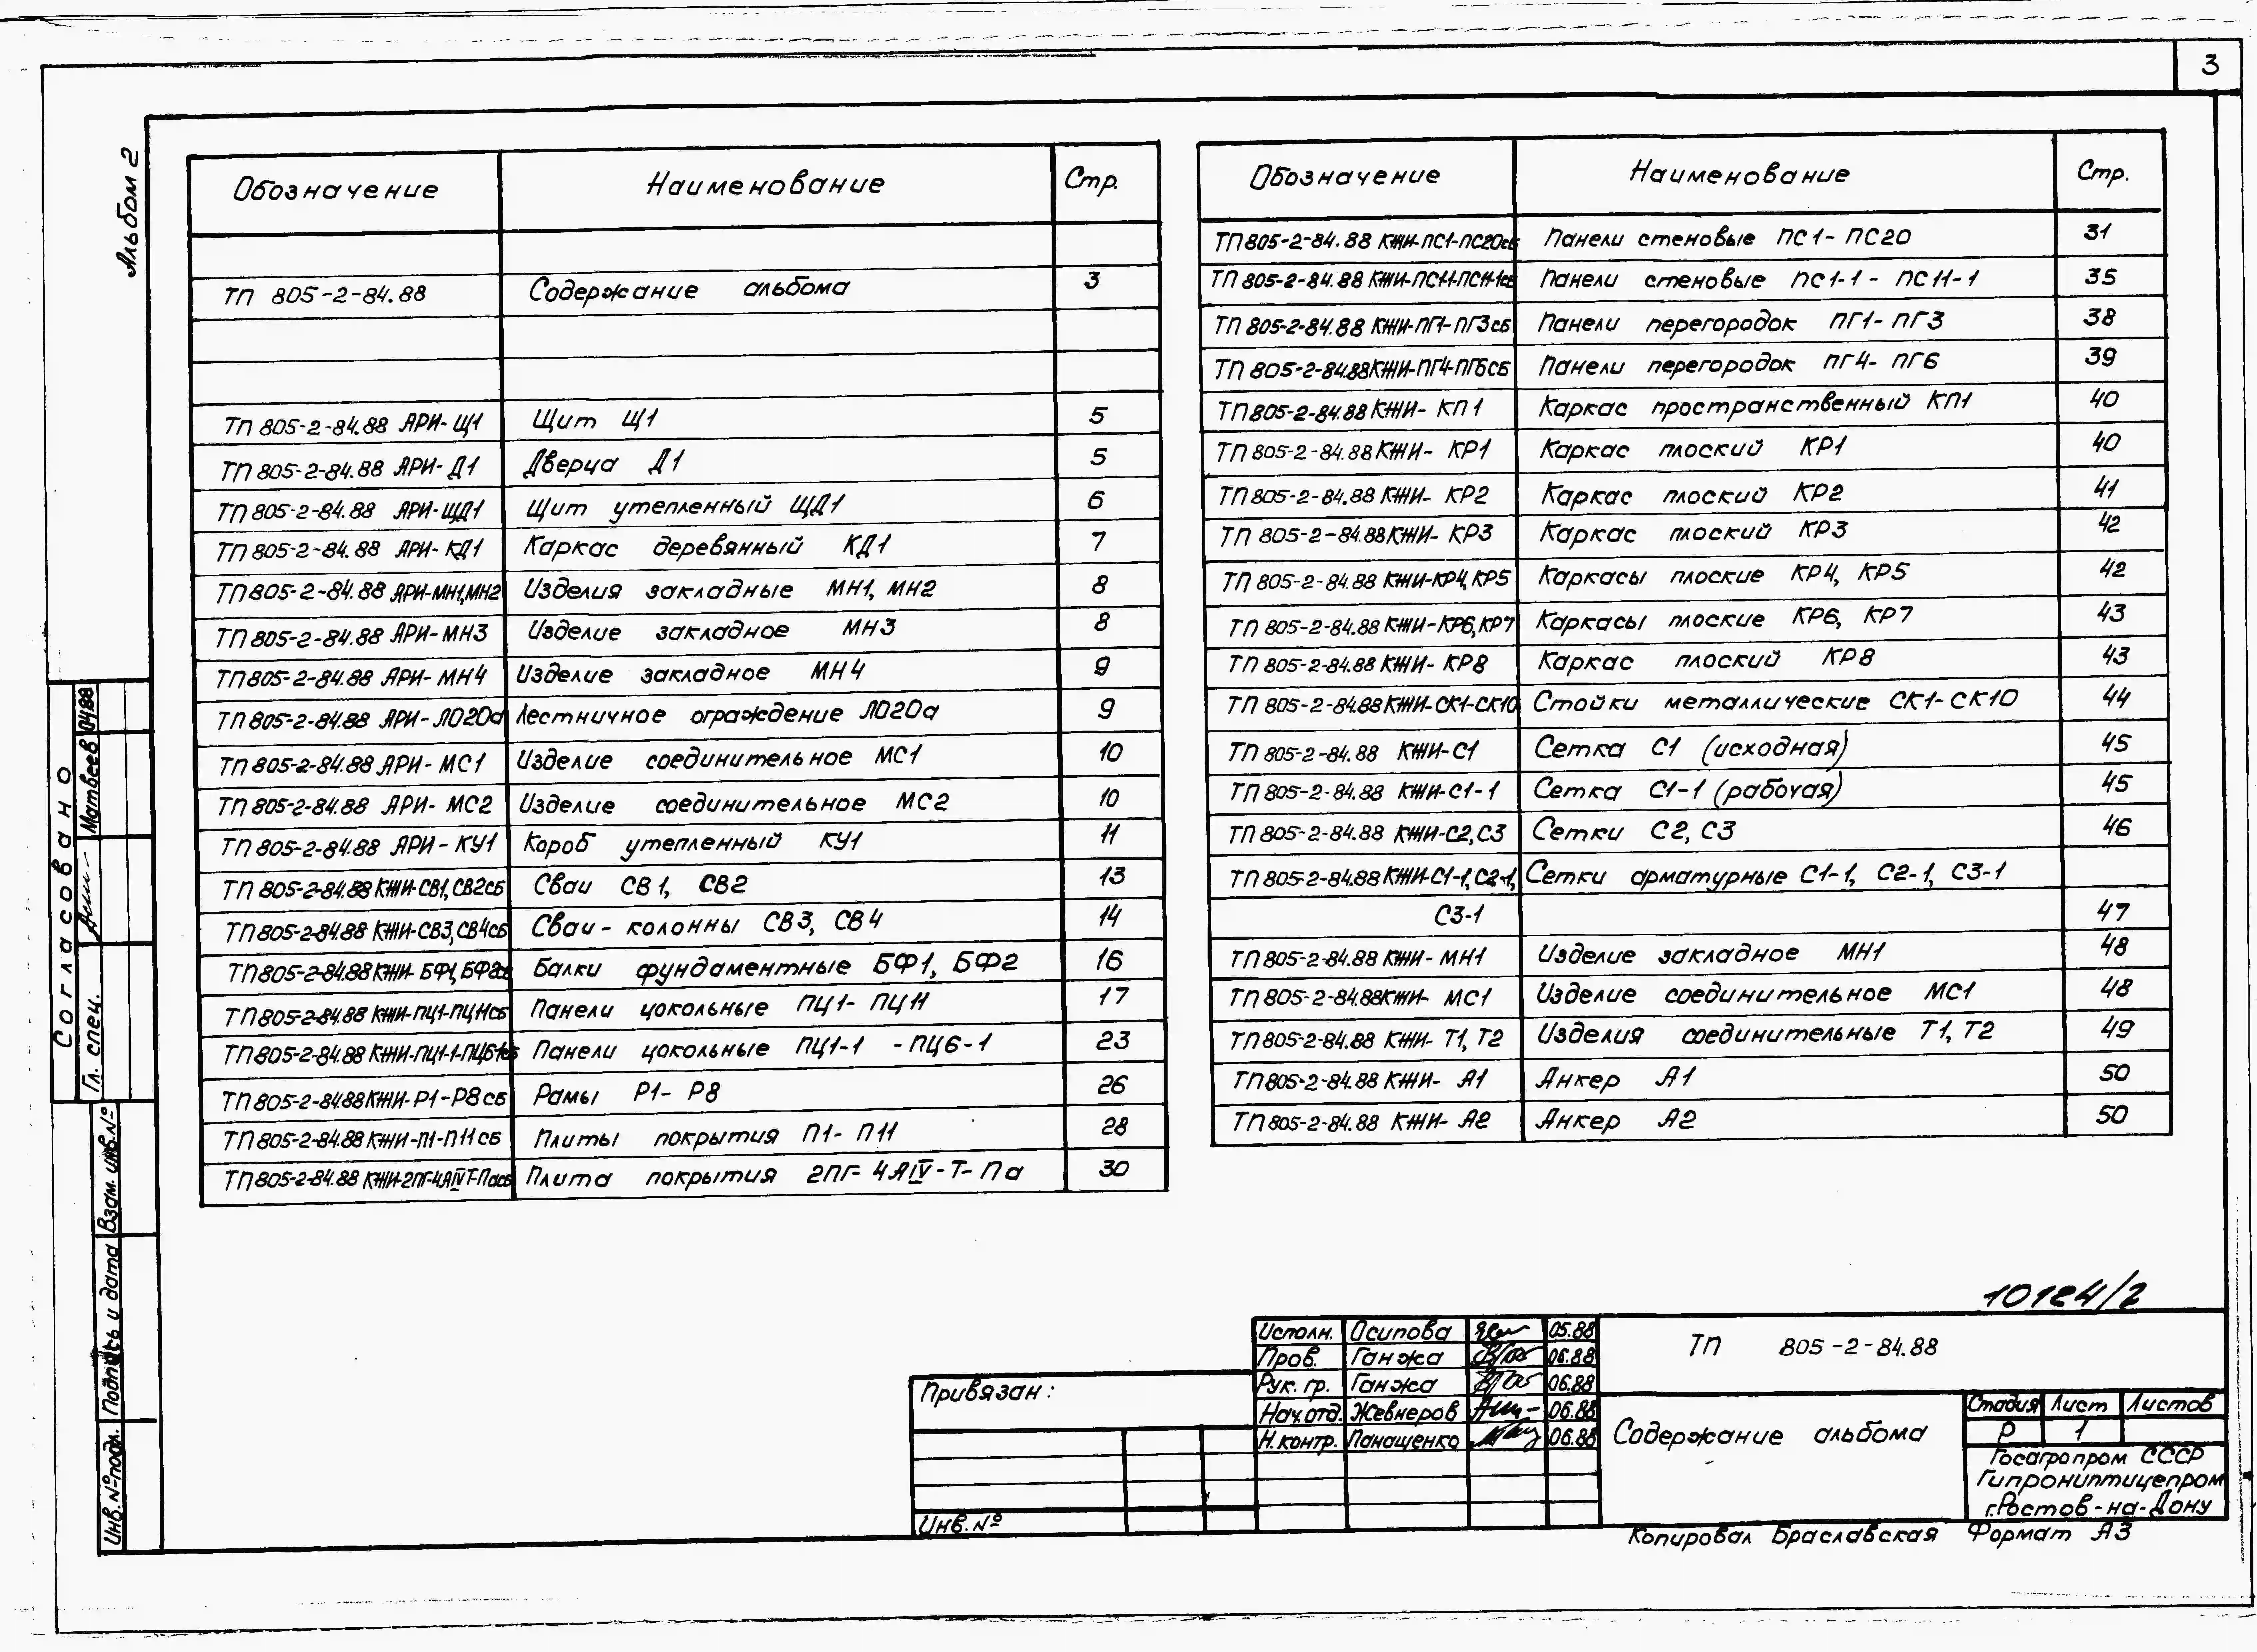 3
Альбом 2
Обозначение Наименование Стр.
ТП 805-2-84.88 Содержание альбома 3
ТП 805-2-84.88 АРИ-Щ1 Щит Щ1 5
ТП 805-2-84.88 АРИ-Д1 Дверца Д1 5
ТП 805-2-84.88 АРИ-ЩД1 Щит утепленный ЩД1 6
ТП 805-2-84.88 АРИ-КД1 Каркас деревянный КД1 7
ТП 805-2-84.88 АРИ-МН1,МН2 Изделия закладные МН1, МН2 8
ТП 805-2-84.88 АРИ-МН3 Изделие закладное МН3 8
ТП 805-2-84.88 АРИ-МН4 Изделие закладное МН4 9
ТП 805-2-84.88 АРИ-ЛО20а Лестничное ограждение ЛО20а 9
ТП 805-2-84.88 АРИ-МС1 Изделие соединительное МС1 10
ТП 805-2-84.88 АРИ-МС2 Изделие соединительное МС2 10
ТП 805-2-84.88 АРИ-КУ1 Короб утепленный КУ1 11
ТП 805-2-84.88 КЖИ-СВ1,СВ2сб Сваи СВ1, СВ2 13
ТП 805-2-84.88 КЖИ-СВ3,СВ4сб Сваи-колонны СВ3, СВ4 14
ТП 805-2-84.88 КЖИ-БФ1,БФ2сб Балки фундаментные БФ1, БФ2 16
ТП 805-2-84.88 КЖИ-ПЦ1-ПЦ11сб Панели цокольные ПЦ1-ПЦ11 17
ТП 805-2-84.88 КЖИ-ПЦ1-1-ПЦ6-1сб Панели цокольные ПЦ1-1 -ПЦ6-1 23
ТП 805-2-84.88 КЖИ-Р1-Р8сб Рамы Р1-Р8 26
ТП 805-2-84.88 КЖИ-П1-П11сб Плиты покрытия П1-П11 28
ТП 805-2-84.88 КЖИ-2ПГ-4АIVТ-Пасб Плита покрытия 2ПГ-4АIV-Т-Па 30
Обозначение Наименование Стр.
ТП 805-2-84.88 КЖИ-ПС1-ПС20сб Панели стеновые ПС1-ПС20 31
ТП 805-2-84.88 КЖИ-ПС1-1-ПС11-1сб Панели стеновые ПС1-1 - ПС11-1 35
ТП 805-2-84.88 КЖИ-ПГ1-ПГ3сб Панели перегородок ПГ1-ПГ3 38
ТП 805-2-84.88 КЖИ-ПГ4-ПГ6сб Панели перегородок ПГ4-ПГ6 39
ТП 805-2-84.88 КЖИ-КП1 Каркас пространственный КП1 40
ТП 805-2-84.88 КЖИ-КР1 Каркас плоский КР1 40
ТП 805-2-84.88 КЖИ-КР2 Каркас плоский КР2 41
ТП 805-2-84.88 КЖИ-КР3 Каркас плоский КР3 42
ТП 805-2-84.88 КЖИ-КР4,КР5 Каркасы плоские КР4, КР5 42
ТП 805-2-84.88 КЖИ-КР6,КР7 Каркасы плоские КР6, КР7 43
ТП 805-2-84.88 КЖИ-КР8 Каркас плоский КР8 43
ТП 805-2-84.88 КЖИ-СК1-СК10 Стойки металлические СК1-СК10 44
ТП 805-2-84.88 КЖИ-С1 Сетка С1 (исходная) 45
ТП 805-2-84.88 КЖИ-С1-1 Сетка С1-1 (рабочая) 45
ТП 805-2-84.88 КЖИ-С2,С3 Сетки С2, С3 46
ТП 805-2-84.88 КЖИ-С1-1,С2-1, Сетки арматурные С1-1, С2-1, С3-1
С3-1 47
ТП 805-2-84.88 КЖИ-МН1 Изделие закладное МН1 48
ТП 805-2-84.88 КЖИ-МС1 Изделие соединительное МС1 48
ТП 805-2-84.88 КЖИ-Т1,Т2 Изделия соединительные Т1, Т2 49
ТП 805-2-84.88 КЖИ-А1 Анкер А1 50
ТП 805-2-84.88 КЖИ-А2 Анкер А2 50
Согласовано
Гл. спец. Матвеев 04.88
Взам. инв.№
Подпись и дата
Инв.№подл.
10124/2
Привязан:
Инв.№
Исполн. Осипова 05.88
Пров. Ганжа 06.88
Рук. гр. Ганжа 06.88
Нач.отд. Жевнеров 06.88
Н.контр. Панащенко 06.88
ТП 805-2-84.88
Содержание альбома
Стадия Лист Листов
Р 1
Госагропром СССР
Гипрониптицепром
г.Ростов-на-Дону
Копировал Браславская Формат А3